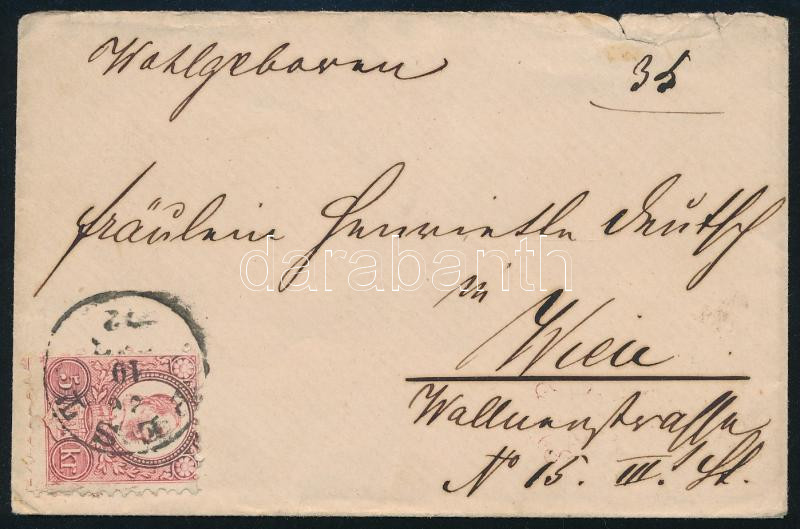 Wohlgeboren 35
Fräulein Henriette Deutsch
in
Wien
Wallnerstrasse
No 15. III. St.
darabanth
5 kr
10